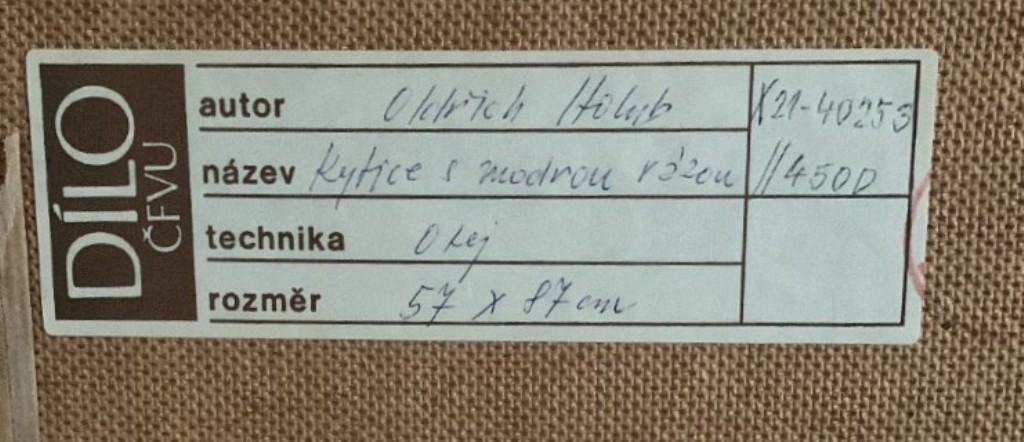 DÍLO
ČFVU
autor Oldřich Holub
X21-40253
název Kytice s modrou vázou
114500
technika Olej
rozměr 57 x 87 cm